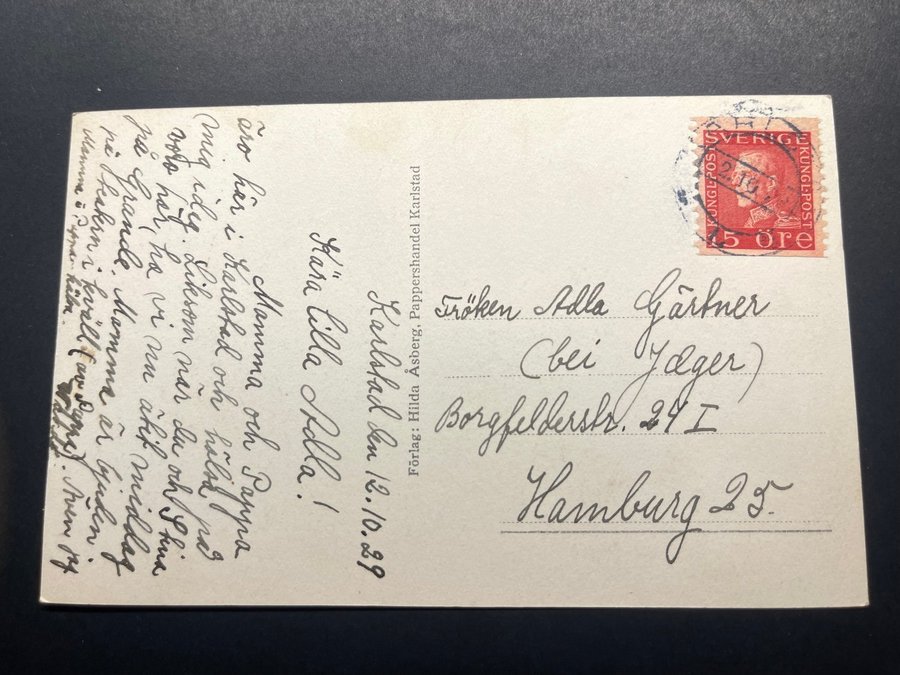 Karlstad den 12.10.29
Kära lilla Adla!
Mamma och Pappa
äro här i Karlstad och hälsa på
mig idag. Liksom när du och
voro här, ha vi nu ätit middag
på Grand. Mamma är bjuden
på i kväll (av ). Även jag
Mamma & Pappa hälsa.
Förlag: Hilda Åsberg, Pappershandel Karlstad
SVERIGE
KUNGL·POST
KUNGL·POST
15 ÖRE
Fröken Adla Gärtner
(bei Jæger)
Borgfelderstr. 24 I
Hamburg 25.